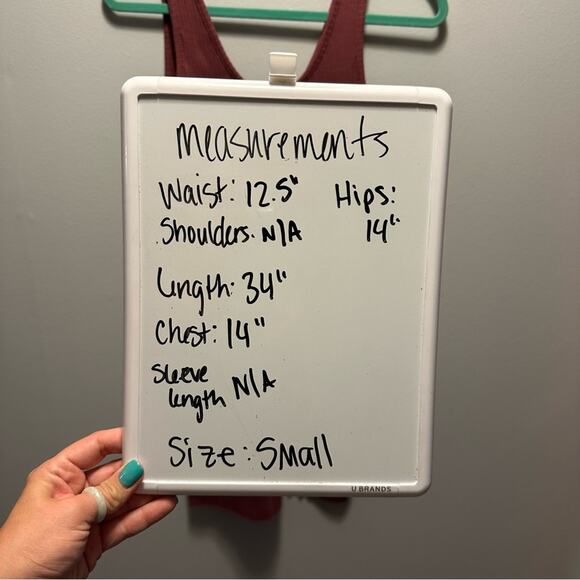 Measurements
Waist: 12.5"
Hips:
14"
Shoulders: N/A
Length: 34"
Chest: 14"
Sleeve
length N/A
Size: Small
U BRANDS